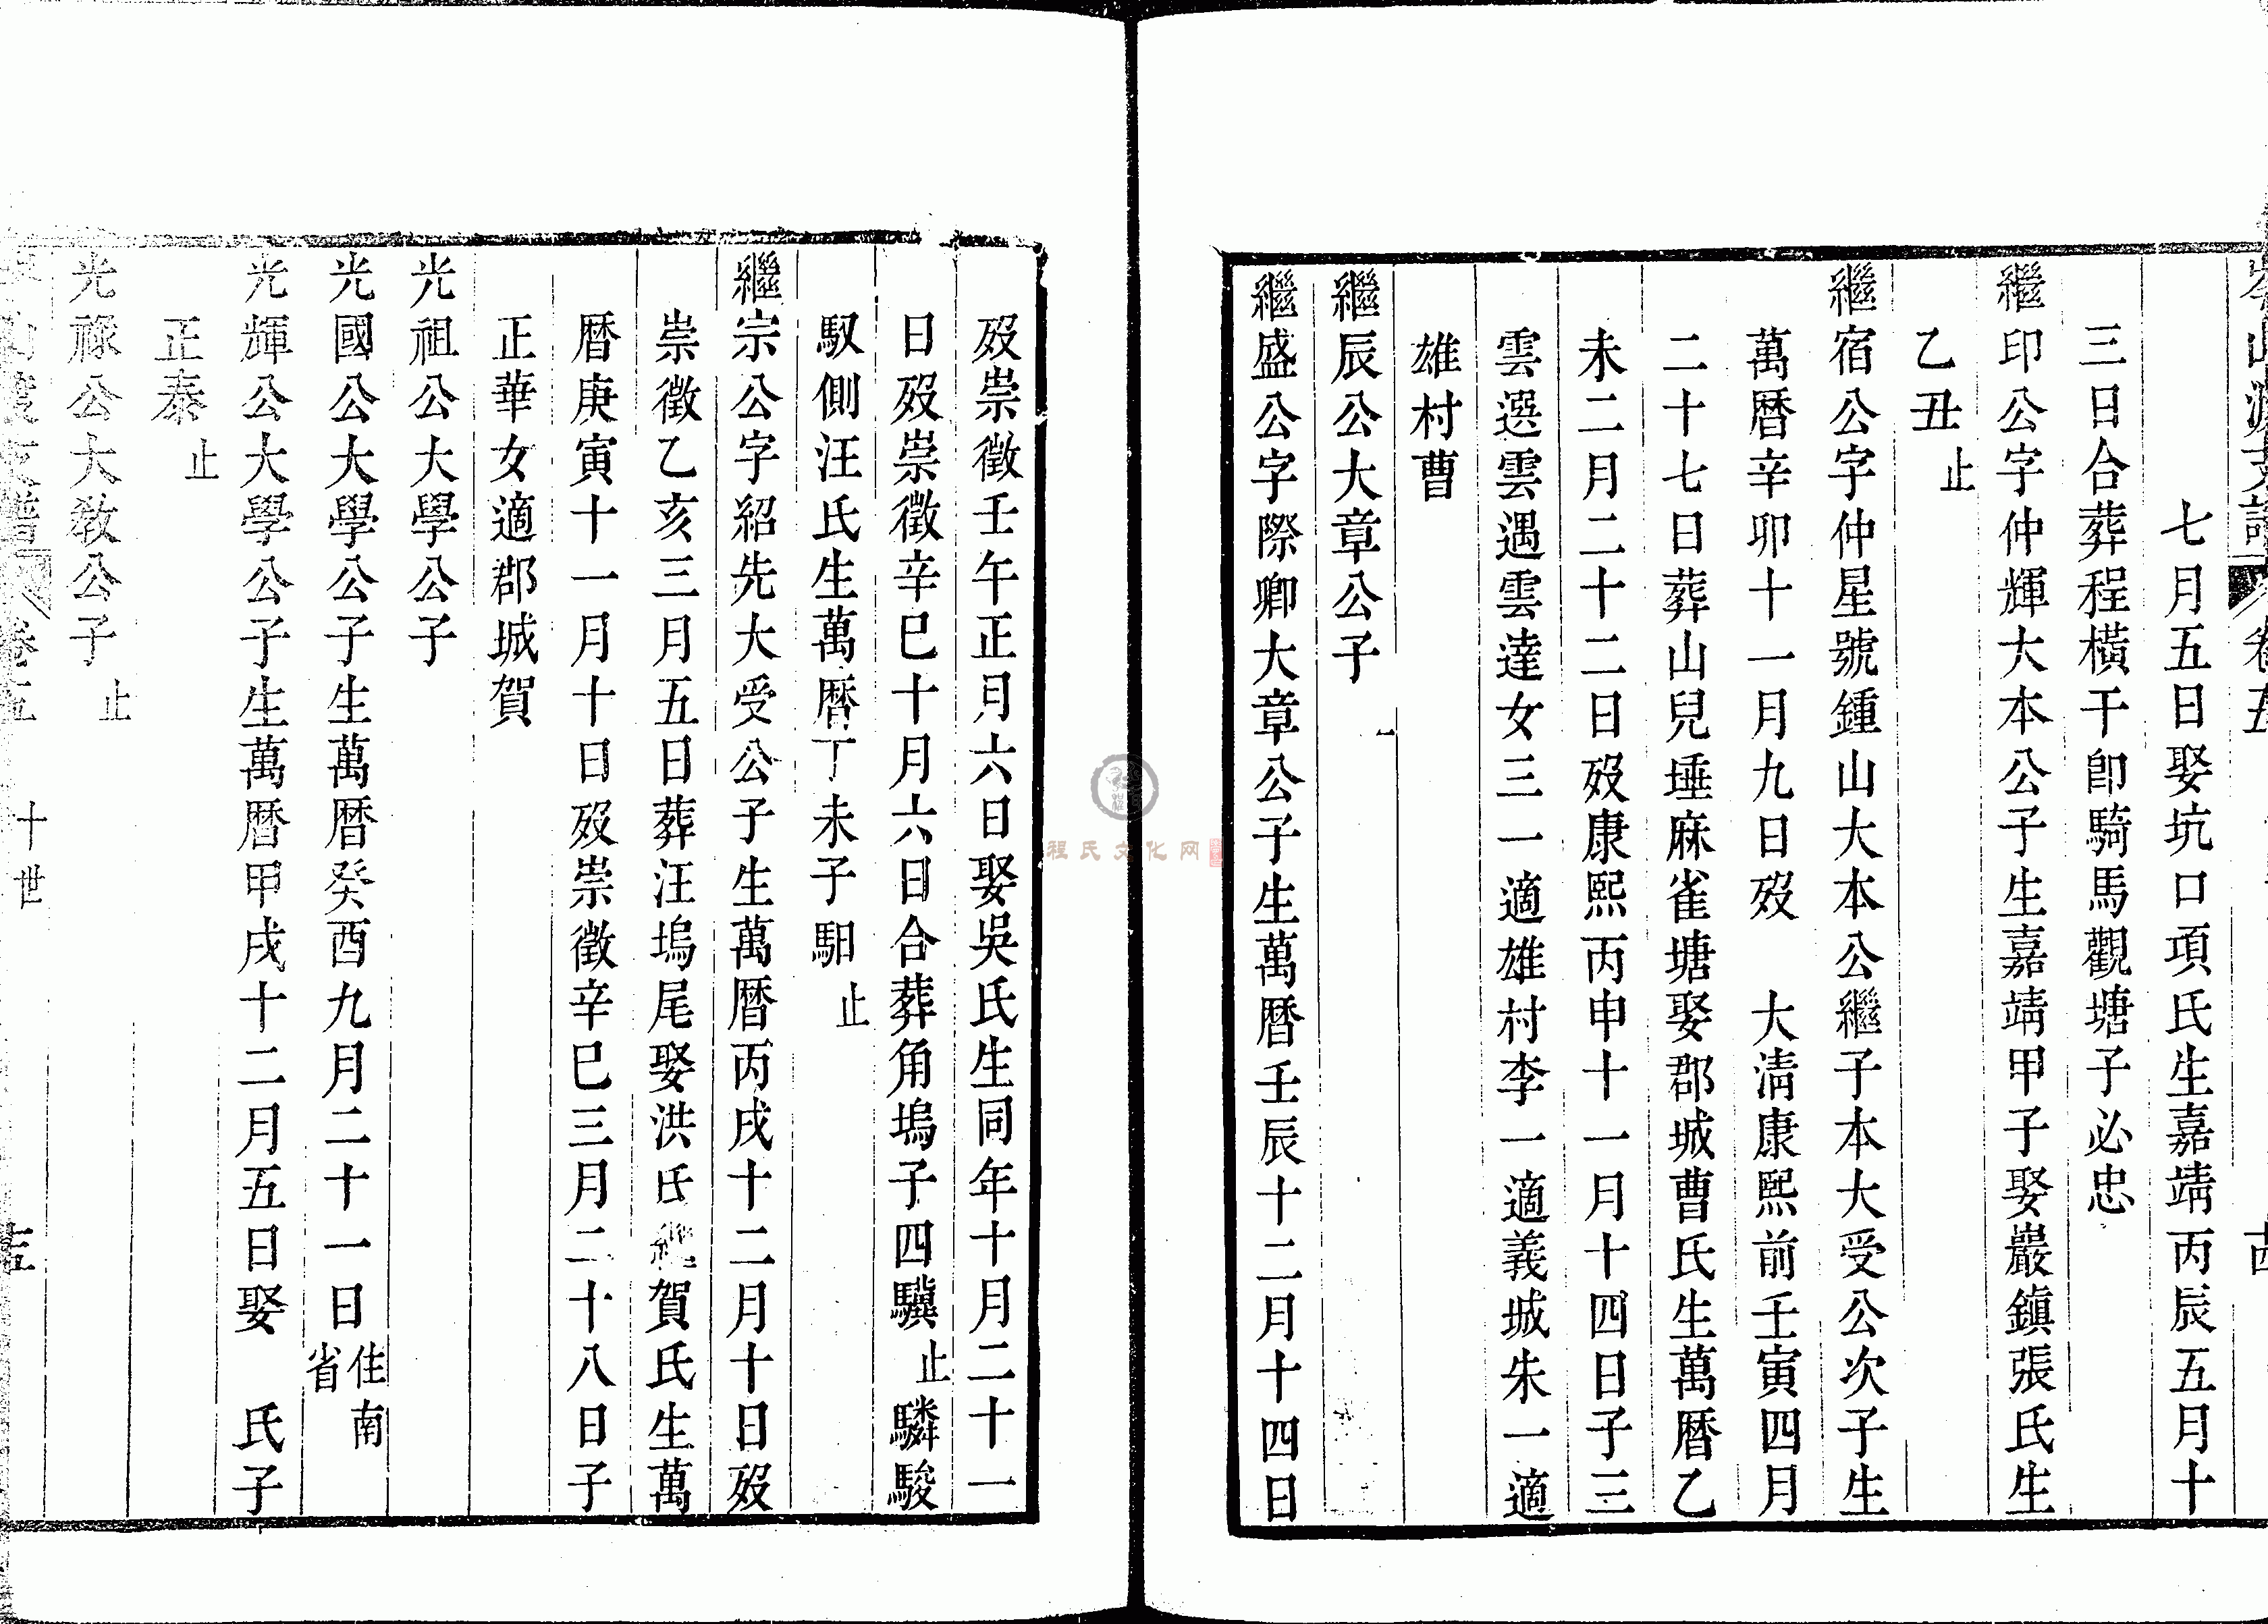 支譜 卷五
七月五日娶坑口項氏生嘉靖丙辰五月十
三日合葬程橫干卽騎馬觀塘子必忠
繼印公字仲輝大本公子生嘉靖甲子娶巖鎮張氏生
乙丑止
繼宿公字仲星號鍾山大本公繼子本大受公次子生
萬曆辛卯十一月九日歿 大淸康熙前壬寅四月
二十七日葬山兒埵麻雀塘娶郡城曹氏生萬曆乙
未二月二十二日歿康熙丙申十一月十四日子三
雲選雲遇雲達女三一適雄村李一適義城朱一適
雄村曹
繼辰公大章公子
繼盛公字際卿大章公子生萬曆壬辰十二月十四日
歿崇徵壬午正月六日娶吳氏生同年十月二十一
日歿崇徵辛巳十月六日合葬角塢子四驥止驎駿
馭側汪氏生萬曆丁未子馹止
繼宗公字紹先大受公子生萬曆丙戌十二月十日歿
崇徵乙亥三月五日葬汪塢尾娶洪氏繼賀氏生萬
曆庚寅十一月十日歿崇徵辛巳三月二十八日子
正華女適郡城賀
光祖公大學公子
光國公大學公子生萬曆癸酉九月二十一日住南省
光輝公大學公子生萬曆甲戌十二月五日娶 氏子
正泰止
光祿公大敎公子止
支譜 卷五 十世
程氏文化网